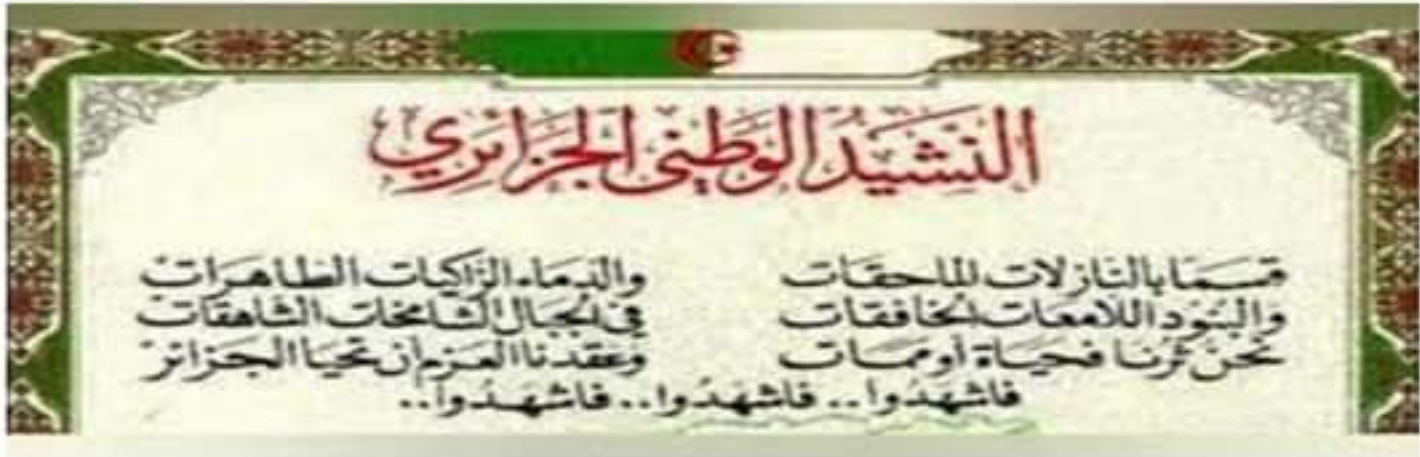 النَّشِيدُ الوَطَنِي الجَزَائِرِي
قسمًا بالنازلات الماحقات والدماء الزاكيات الطاهرات
والبنود اللامعات الخافقات في الجبال الشامخات الشاهقات
نحن ثرنا فحياة أو ممات وعقدنا العزم أن تحيا الجزائر
فاشهدوا.. فاشهدوا.. فاشهدوا..